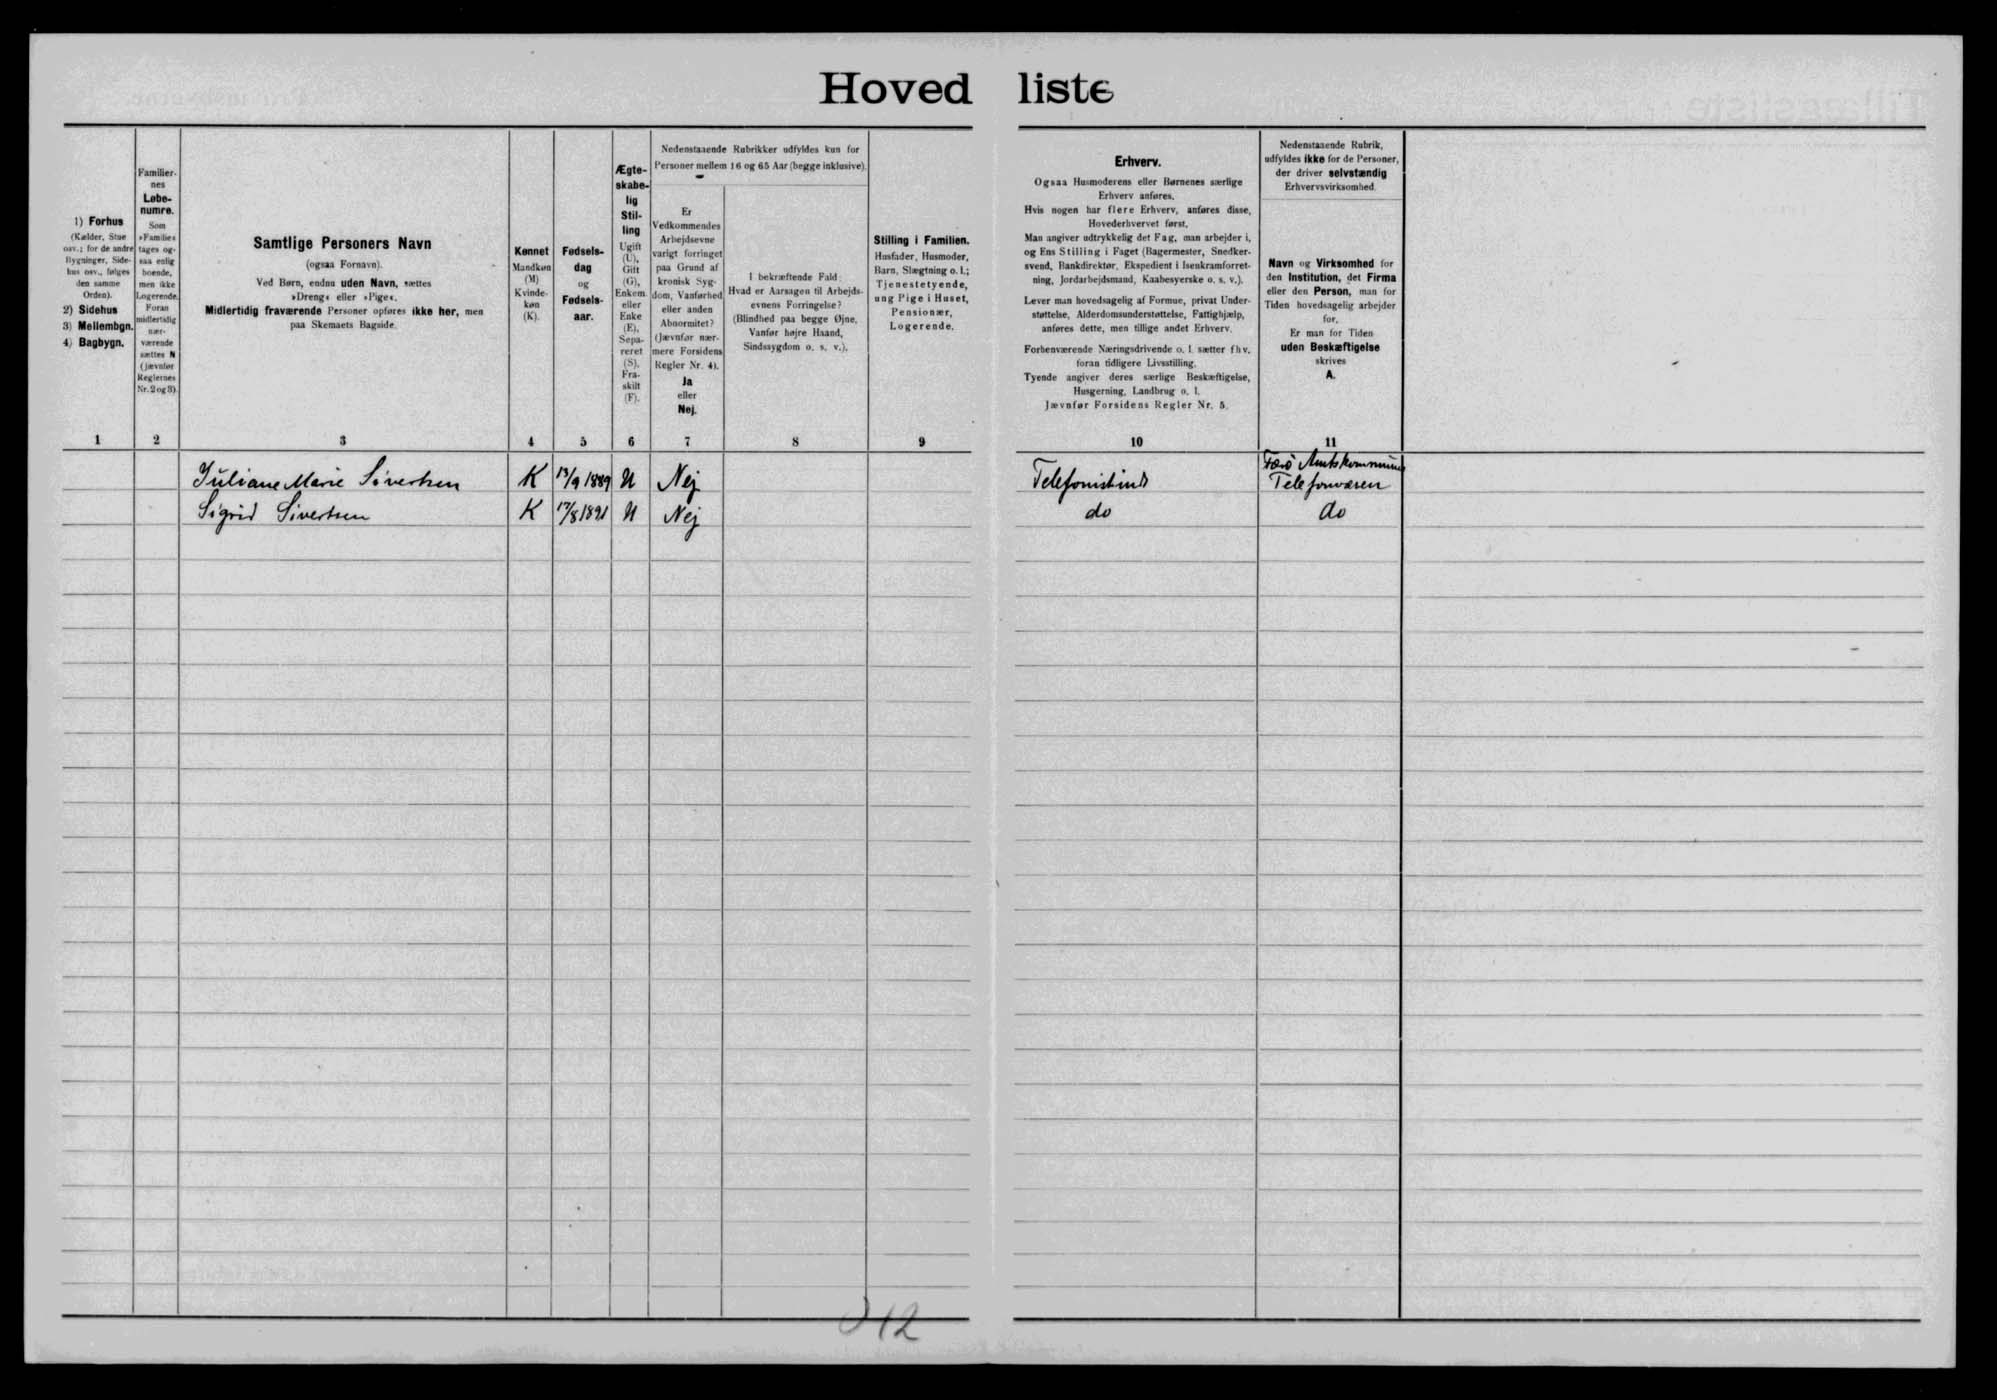 Hovedliste
1) Forhus
(Kælder, Stue
osv.; for de andre
Bygninger, Side-
hus osv., følges
den samme
Orden).
2) Sidehus
3) Mellembgn.
4) Bagbygn.
1
Familier-
nes
Løbe-
numre.
Som
»Familie«
tages og-
saa enlig
boende,
men ikke
Logerende.
Foran
midlertidig
nær-
værende
sættes N
(jævnfør
Reglernes
Nr. 2 og 3).
2
Samtlige Personers Navn
(ogsaa Fornavn).
Ved Børn, endnu uden Navn, sættes
»Dreng« eller »Pige«.
Midlertidig fraværende Personer opføres ikke her, men
paa Skemaets Bagside.
3
Kønnet
Mandkøn
(M)
Kvinde-
køn
(K).
4
Fødsels-
dag
og
Fødsels-
aar.
5
Ægte-
skabe-
lig
Stil-
ling
Ugift
(U),
Gift
(G),
Enkem.
eller
Enke
(E),
Sepa-
reret
(S),
Fra-
skilt
(F).
6
Nedenstaaende Rubrikker udfyldes kun for
Personer mellem 16 og 65 Aar (begge inklusive).
Er
Vedkommendes
Arbejdsevne
varigt forringet
paa Grund af
kronisk Syg-
dom, Vanførhed
eller anden
Abnormitet?
(Jævnfør nær-
mere Forsidens
Regler Nr. 4).
Ja
eller
Nej.
7
I bekræftende Fald:
Hvad er Aarsagen til Arbejds-
evnens Forringelse?
(Blindhed paa begge Øjne,
Vanfør højre Haand,
Sindssygdom o. s. v.).
8
Stilling i Familien.
Husfader, Husmoder,
Barn, Slægtning o. l.;
Tjenestetyende,
ung Pige i Huset,
Pensionær,
Logerende.
9
Erhverv.
Ogsaa Husmoderens eller Børnenes særlige
Erhverv anføres.
Hvis nogen har flere Erhverv, anføres disse,
Hovederhvervet først.
Man angiver udtrykkelig det Fag, man arbejder i,
og Ens Stilling i Faget (Bagermester, Snedker-
svend, Bankdirektør, Ekspedient i Isenkramforret-
ning, Jordarbejdsmand, Kaabesyerske o. s. v.).
Lever man hovedsagelig af Formue, privat Under-
støttelse, Alderdomsunderstøttelse, Fattighjælp,
anføres dette, men tillige andet Erhverv.
Forhenværende Næringsdrivende o. l. sætter fhv.
foran tidligere Livsstilling.
Tyende angiver deres særlige Beskæftigelse,
Husgerning, Landbrug o. l.
Jævnfør Forsidens Regler Nr. 5.
10
Nedenstaaende Rubrik,
udfyldes ikke for de Personer,
der driver selvstændig
Erhvervsvirksomhed.
Navn og Virksomhed for
den Institution, det Firma
eller den Person, man for
Tiden hovedsagelig arbejder
for.
Er man for Tiden
uden Beskæftigelse
skrives
A.
11
Juliane Marie Sivertsen K 13/9 1889 U Nej Telefonistinde Færø Amtskommunes
Telefonvæsen
Sigrid Sivertsen K 17/8 1891 U Nej do do